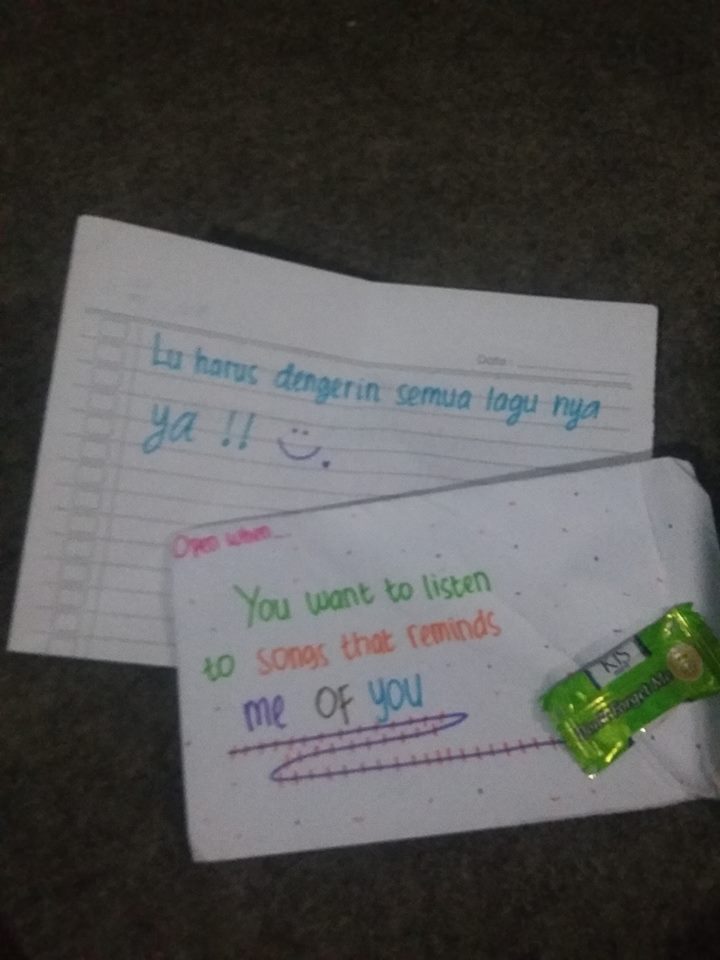 Date:
Lu harus dengerin semua lagu nya
ya !!
Open when...
You want to listen
to songs that reminds
me OF you
KIS
Don't Forget Me